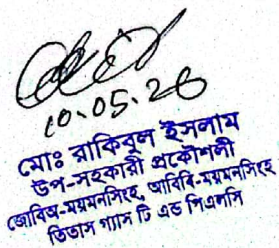 10.05.26
মোঃ রাকিবুল ইসলাম
উপ-সহকারী প্রকৌশলী
জোবিঅ-ময়মনসিংহ, আবিবি-ময়মনসিংহ
তিতাস গ্যাস টি এন্ড পিএলসি